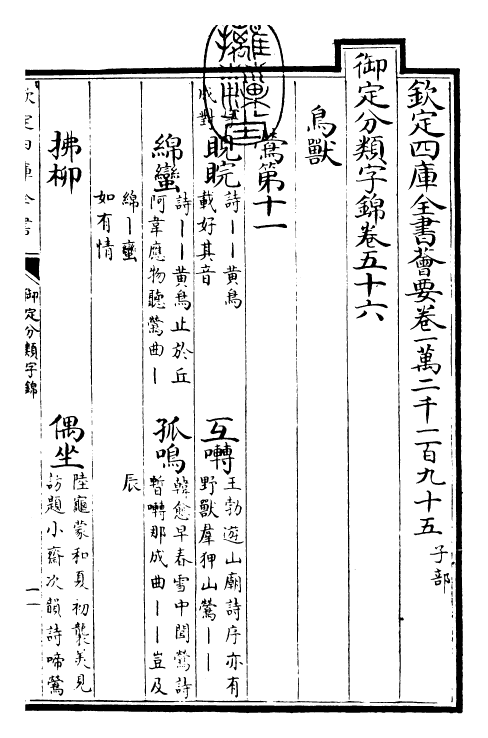 欽定四庫全書薈要卷一萬二千二百九十五 子部
御定分類字錦卷五十六
鳥獸
鶯第十一
成對
睍睆 詩丨丨黃鳥
載好其音
互囀 王勃遊山廟詩序亦有
野獸羣狎山鶯丨丨
綿蠻 詩丨丨黃鳥止於丘
阿韋應物聽鶯曲丨
綿丨蠻
如有情
孤鳴 韓愈早春雪中聞鶯詩
暫囀那成曲丨丨豈及
辰
拂柳
偶坐 陸龜蒙和夏初襲美見
訪題小齋次韻詩啼鶯
欽定四庫全書
御定分類字錦
一